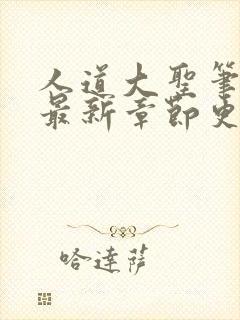 人道大圣筆
最新章節史
哈達薩